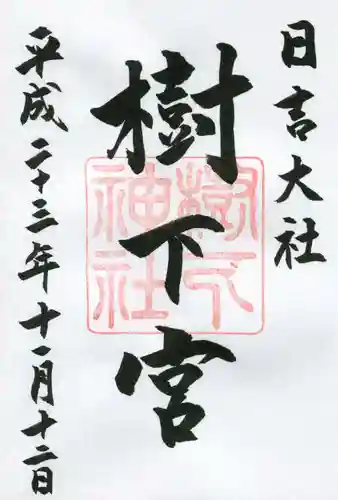 日吉大社
樹下宮
樹下神社
平成二十三年十一月十二日